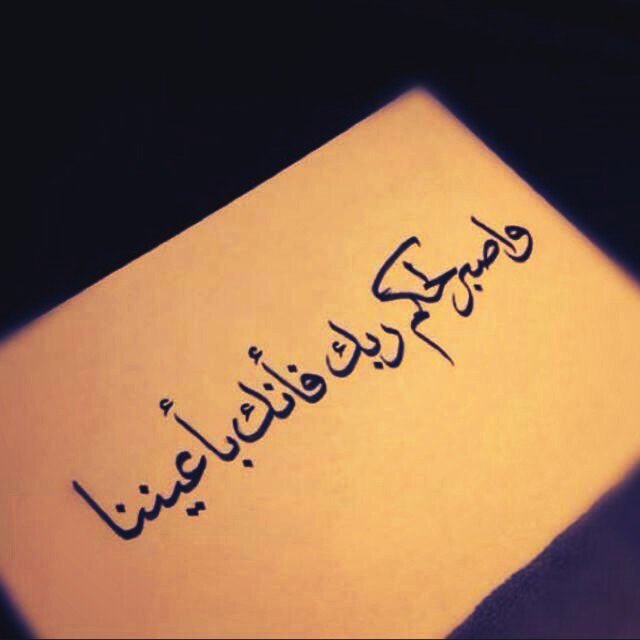 واصبر لحكم ربك فأنك بأعيننا